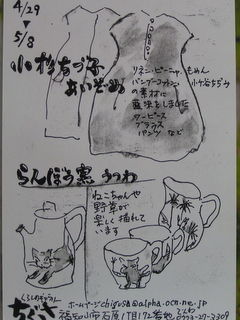 4/29
5/8
小杉あづ子
あい染め
リネン・ピーニャ・もめん
バンブーコットン・小ケ谷ちぢみ
の素材に
藍染をしました
ワンピース
ブラウス
パンツ など
らんぼう窯 うつわ
ねこちゃんや
野菜が
楽しく描れて
います
くらしのギャラリー
ちぐさ
ホームページchigusa@alpha.ocn.ne.jp
福知山市石原1丁目172番地
0773-27-3309